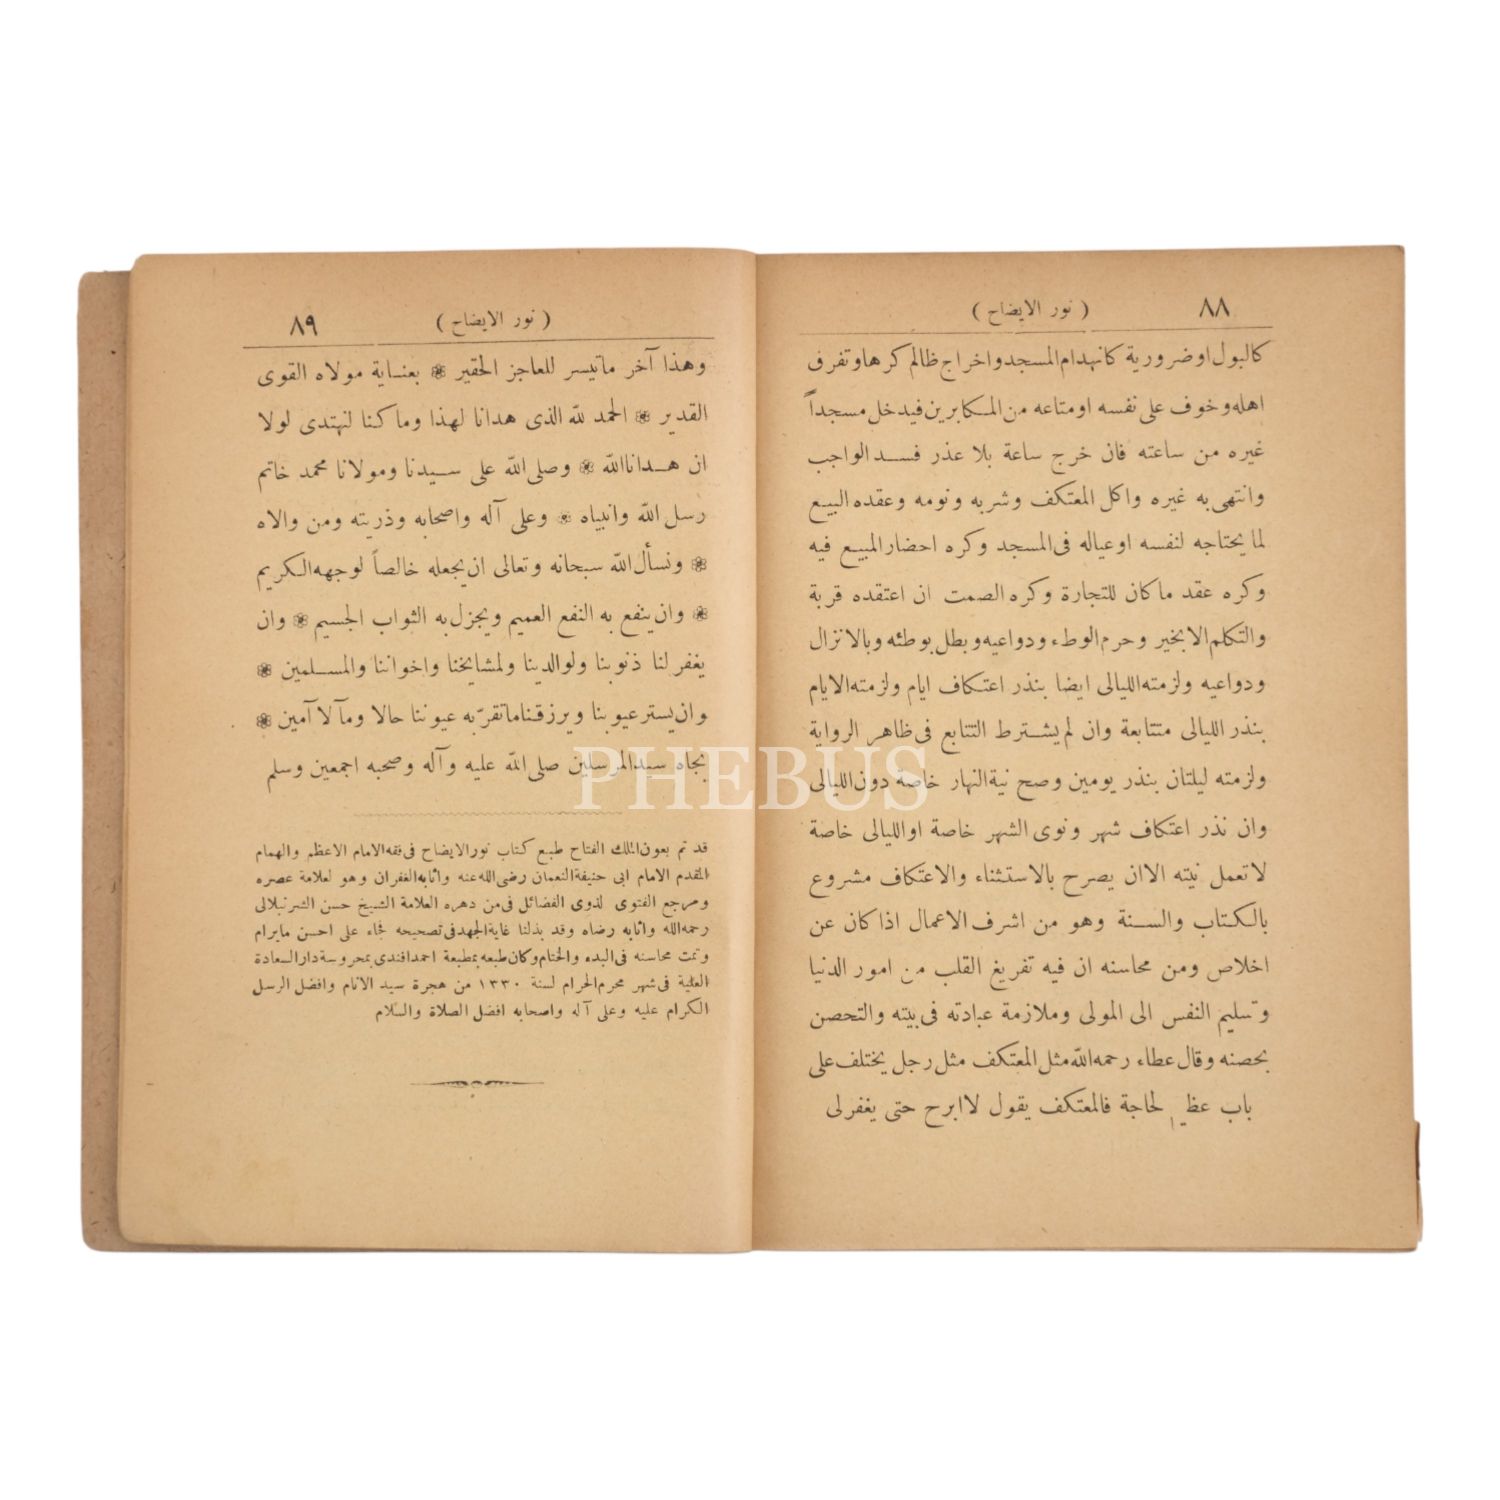 ٨٨
( نور الايضاح )
كالبول او ضرورية كانهدام المسجد واخراج ظالم كرها وتفرق
اهله وخوف على نفسه او متاعه من المكابرين فيدخل مسجداً
غيره من ساعته فان خرج ساعة بلا عذر فسد الواجب
وانتهى به غيره واكل المعتكف وشربه ونومه وعقده البيع
لما يحتاجه لنفسه او عياله فى المسجد وكره احضار المبيع فيه
وكره عقد ما كان للتجارة وكره الصمت ان اعتقده قربة
والتكلم الا بخير وحرم الوطء ودواعيه وبطل بوطئه وبالانزال
ودواعيه ولزمته الليالى ايضا بنذر اعتكاف ايام ولزمته الايام
بنذر الليالى متتابعة وان لم يشترط التتابع فى ظاهر الرواية
ولزمته ليلتان بنذر يومين وصح نية النهار خاصة دون الليالى
وان نذر اعتكاف شهر ونوى الشهر خاصة او الليالى خاصة
لا تعمل نيته الا ان يصرح بالاستثناء والاعتكاف مشروع
بالكتاب والسنة وهو من اشرف الاعمال اذا كان عن
اخلاص ومن محاسنه ان فيه تفريغ القلب من امور الدنيا
وتسليم النفس الى المولى وملازمة عبادته فى بيته والتحصن
بحصنه وقال عطاء رحمه الله مثل المعتكف مثل رجل يختلف على
باب عظيم لحاجة فالمعتكف يقول لا ابرح حتى يغفر لى
( نور الايضاح )
٨٩
وهذا آخر ما تيسر للعاجز الحقير ❀ بعناية مولاه القوى
القدير ❀ الحمد لله الذى هدانا لهذا وما كنا لنهتدى لولا
ان هدانا الله ❀ وصلى الله على سيدنا ومولانا محمد خاتم
رسل الله وانبياه ❀ وعلى آله واصحابه وذريته ومن والاه
❀ ونسأل الله سبحانه وتعالى ان يجعله خالصاً لوجهه الكريم
❀ وان ينفع به النفع العميم ويجزل به الثواب الجسيم ❀ وان
يغفر لنا ذنوبنا ولوالدينا ولمشايخنا واخواننا والمسلمين ❀
وان يستر عيوبنا ويرزقنا ما تقرّ به عيوننا حالا ومآلا آمين ❀
بجاه سيد المرسلين صلى الله عليه وآله وصحبه اجمعين وسلم
قد تم بعون الملك الفتاح طبع كتاب نور الايضاح فى فقه الامام الاعظم والهمام
المقدم الامام ابى حنيفة النعمان رضى الله عنه واثابه الغفران وهو لعلامة عصره
ومرجع الفتوى لذوى الفضائل فى من دهره العلامة الشيخ حسن الشرنبلالى
رحمه الله واثابه رضاه وقد بذلنا غاية الجهد فى تصحيحه فجاء على احسن ما يرام
وتمت محاسنه فى البدء والختام وكان طبعه بمطبعة احمد افندى بمحروسة دار السعادة
العلية فى شهر محرم الحرام لسنة ١٣٣٠ من هجرة سيد الانام وافضل الرسل
الكرام عليه وعلى آله واصحابه افضل الصلاة والسلام
PHEBUS